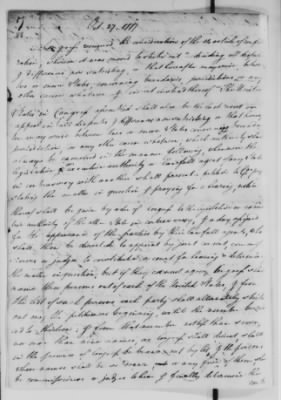 Oct. 27. 1777
Congress resumed the consideration of the articles of confederation
& difference now subsisting or that hereafter may arise between
two or more States, concerning boundary, jurisdiction, or any
other cause whatever & in lieu thereof The United
States in Congress assembled shall also be the last resort on
appeal in all disputes & differences now subsisting or that hereafter
may arise between two or more States concerning boundary
jurisdiction, or any other cause whatever, which authority shall
always be exercised in the manner following, whenever the
legislative or executive authority or lawful agent of any State
in controversy with another shall present a petition to Congress
stating the matter in question & praying for a hearing, notice
thereof shall be given by order of congress to the legislative or executive
authority of the other State in controversy, & a day assigned
for the appearance of the parties by their lawful agents, who
shall then be directed to appoint by joint consent
or judges to constitute a court for hearing & determining
the matter in question; but if they cannot agree, Congress shall
name three persons out of each of the United States, & from
the list of such persons each party shall alternately strike
out one, the petitioners beginning, until the number be reduced
to thirteen; & from that number not less than seven,
nor more than nine names, as Congress shall direct shall
in the presence of congress be drawn out by lot, & the persons
whose names shall be so drawn or any five of them shall
be commissioners or judges to hear & finally determine the